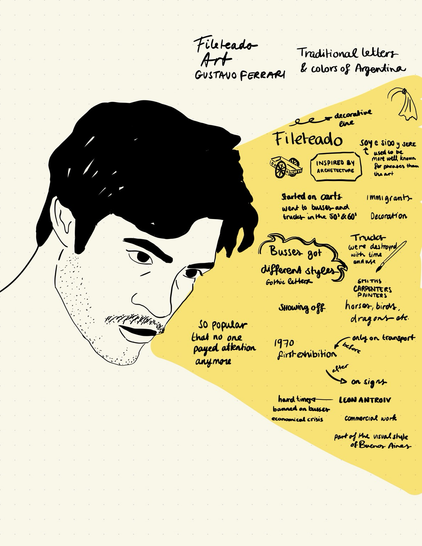 Fileteado
Art
GUSTAVO FERRARI
Traditional letters
& colors of Argentina
decorative
line
Fileteado
INSPIRED BY
ARCHITECTURE
soy e sido y sere
used to be
more well known
for phrases than
the art
Started on carts
went to busses and
trucks in the 50's & 60'
immigrants
Decoration
Busses got
different styles
Gothic letters
Trucks
were destroyed
with time
and use
SMITHS
CARPENTERS
PAINTERS
Showing off
horses, birds,
dragons etc.
So popular
that no one
payed attention
anymore
1970
first exhibition
only on transport
before
after
on signs
hard times
banned on busses
economical crisis
LEON
commercial work
part of the visual style
of Buenos Aires